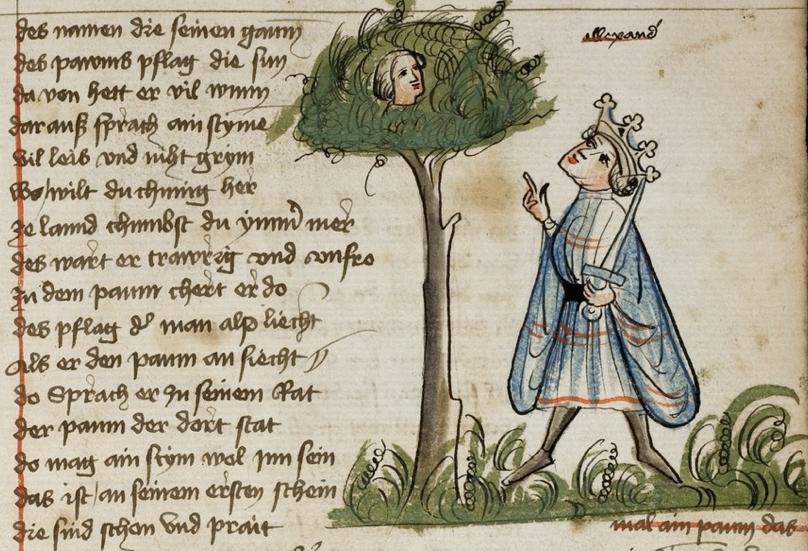 allexand'
des namen die seinen gann
des pawms pflag die sun
da von hett er vil wunn
dar auß sprach ain styme
vil leis vnd niht grym
wo wilt du chunig her
ze lannd chumbst du ÿmm' mer
des wart er trawrig vnd vnfro
zu dem paum chert er do
des pflag d' man alß liecht
als er den paum an siecht
do Sprach er zu seinem Rat
der paum der dort stat
do mag ain stym wol inn sein
das ist an seinem ersten schein
die sind schon vnd prait
mal ain paum das